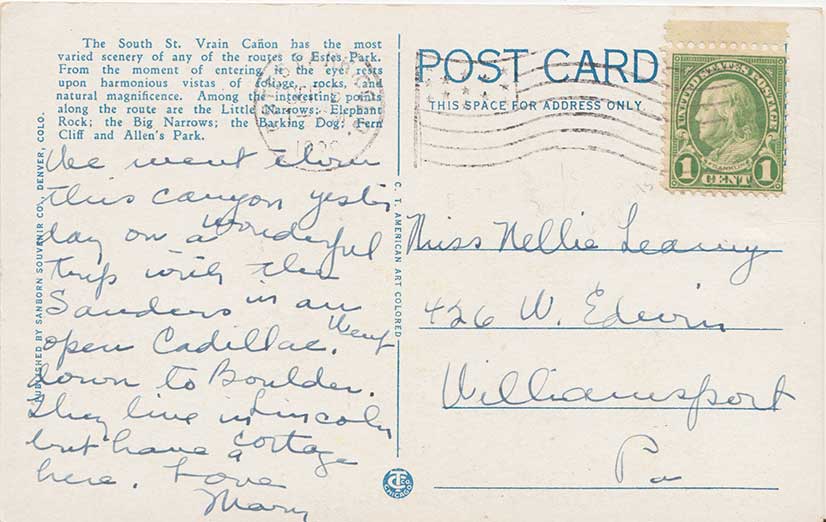 The South St. Vrain Cañon has the most
varied scenery of any of the routes to Estes Park.
From the moment of entering it the eye rests
upon harmonious vistas of foliage, rocks, and
natural magnificence. Among the interesting points
along the route are the Little Narrows; Elephant
Rock; the Big Narrows; the Barking Dog; Fern
Cliff and Allen's Park.
We went down
this canyon yester
day on a wonderful
trip with the
Sanders in an
open Cadillac. Went
down to Boulder.
They live in Lincoln
but have a cottage
here. Love
Mary
PUBLISHED BY SANBORN SOUVENIR CO., DENVER, COLO.
C. T. AMERICAN ART COLORED
POST CARD
THIS SPACE FOR ADDRESS ONLY
UNITED STATES POSTAGE
FRANKLIN
1 CENT 1
Miss Nellie
426 W. Edwin
Williamsport
Pa
CT CO
CHICAGO